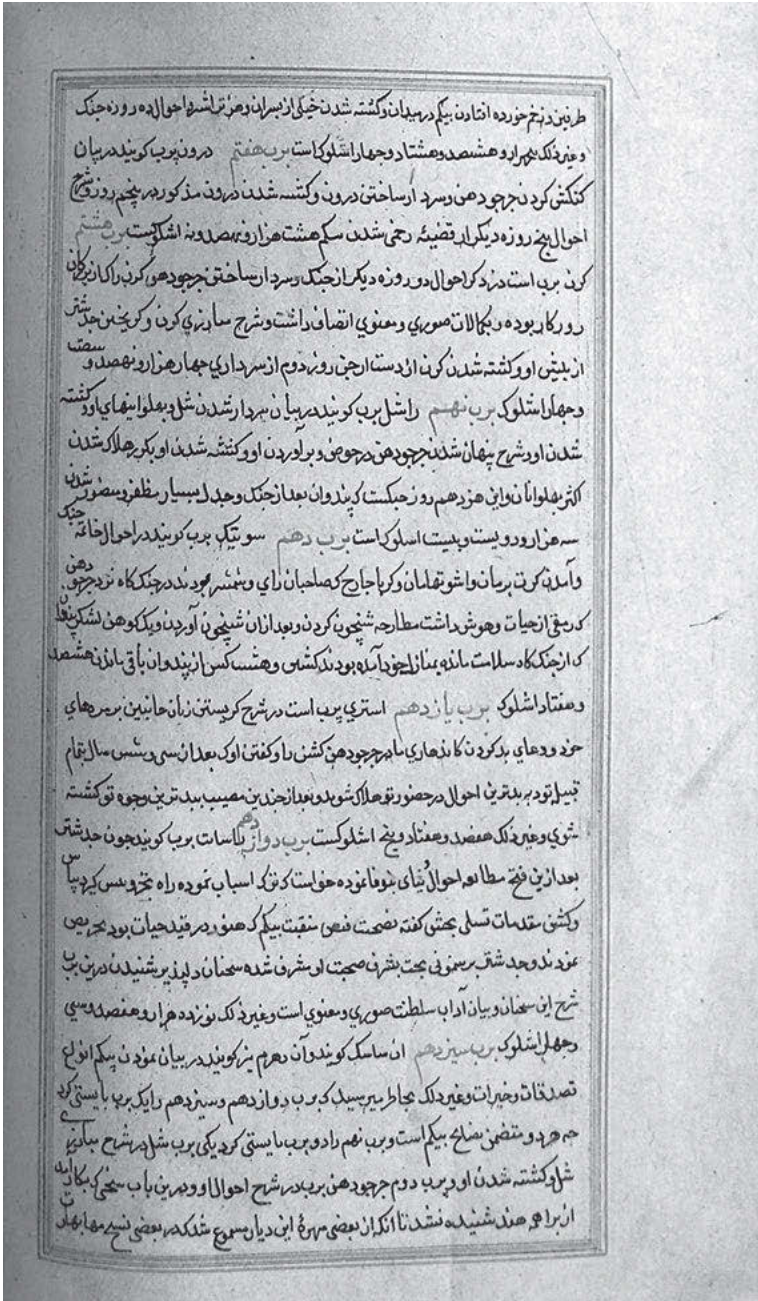 طرفین و زخم خورده افتادن بیکم در میدان و کشته شدن خیلی از پسران دهرتراشتر و احوال ده روزه جنک
و غیر ذلک پنجهزار و هشتصد و هشتاد و چهار اشلوک است برب هفتم درون برب کویند در بیان
کنکش کردن جرجودهن و سردار ساختن درون و کشته شدن درون مذکور در پنجم روز و شرح
احوال پنج روزه دیکر از قضیهٔ زخمی شدن بیکم هشت هزار و نهصد و نه اشلوکست برب هشتم
کرن برب است در ذکر احوال دو روزه دیکر از جنک و سردار ساختن جرجودهن کرن را که از بزرکان
روزکار بوده و بکمالات صوری و معنوی اتصاف داشت و شرح مبارزی کرن و کریختن جدشتر
از پیش او و کشته شدن کرن از دست ارجن روز دوم از سرداری چهار هزار و نهصد و شصت
و چهار اشلوک برب نهم را شل برب کویند در بیان سردار شدن شل و پهلوانیهای او و کشته
شدن او و شرح پنهان شدن جرجودهن در حوض و برآوردن او و کشته شدن او بکرز هلاک شدن
اکثر پهلوانان و این هژدهم روز جنکست که پندوان بعد از جنک و جدل بسیار مظفر و منصور شدن
سه هزار و دویست و بیست اشلوک است برب دهم سوپتیک برب کویند در احوال خاتمه جنک
و آمدن کرت برمان و اشوتهامان و کرپاچارج که صاحبان رای و شمشیر بودند در جنک کاه نزد جرجودهن
که رمقی از حیات و هوش داشت مطارحه شبخون کردن و بعد از آن شبخون آوردن و یک کوهن لشکر پندوان
که از جنک کاه سلامت مانده بمنازل خود آمده بودند کشتن و هشت کس از پندوان باقی ماندن هشتصد
و هفتاد اشلوک برب یازدهم استری برب است در شرح کریستن زنان جانبین بر مردهای
خود و دعای بد کردن کاندهاری مادر جرجودهن کشن را و کفتن او که بعد از سی و شش سال تمام
قبیله تو به بدترین احوال در حضور تو هلاک شوند و بعد از چندین مصیبت ببدترین وجوه تو کشته
شوی و غیر ذلک هفصد و هفتاد و پنج اشلوکست برب دوازدهم را سات برب کویند چون جدشتر
بعد ازین فتح مطالعه احوال دنیای بیوفا نموده خواست که ترک اسباب نموده راه تجرد پیش کیرد بیاس
و کشن مقدمات تسلی بخش کفته نصیحت بیکم که هنوز در قید حیات بود تحریص
نمودند و جدشتر برهنمونی بخت بشرف صحبت او مشرف شده سخنان دلپذیر شنیدن درین برب
شرح این سخنان و بیان آداب سلطنت صوری و معنوی است و غیر ذلک نوزده هزار و هفصد و سی
و چهار اشلوک برب سیزدهم ان ساسک کویند و آن دهرم نیز کویند در بیان نمودن بیکم انواع
تصدقات و خیرات و غیر ذلک بخاطر میرسید که برب دوازدهم و سیزدهم را یک برب بایستی کرد
چه هردو متضمن نصایح بیکم است و برب نهم را دو برب بایستی کرد یکی برب شل در شرح مبارزی
شل و کشته شدن او و برب دوم جرجودهن برب در شرح احوال او و درین باب سخنی که بکار آمد
از براهمه هند شنیده نشد تا آنکه از بعضی مهرهٔ این دیار مسموع شد که در بعضی نسخ مهابهارت